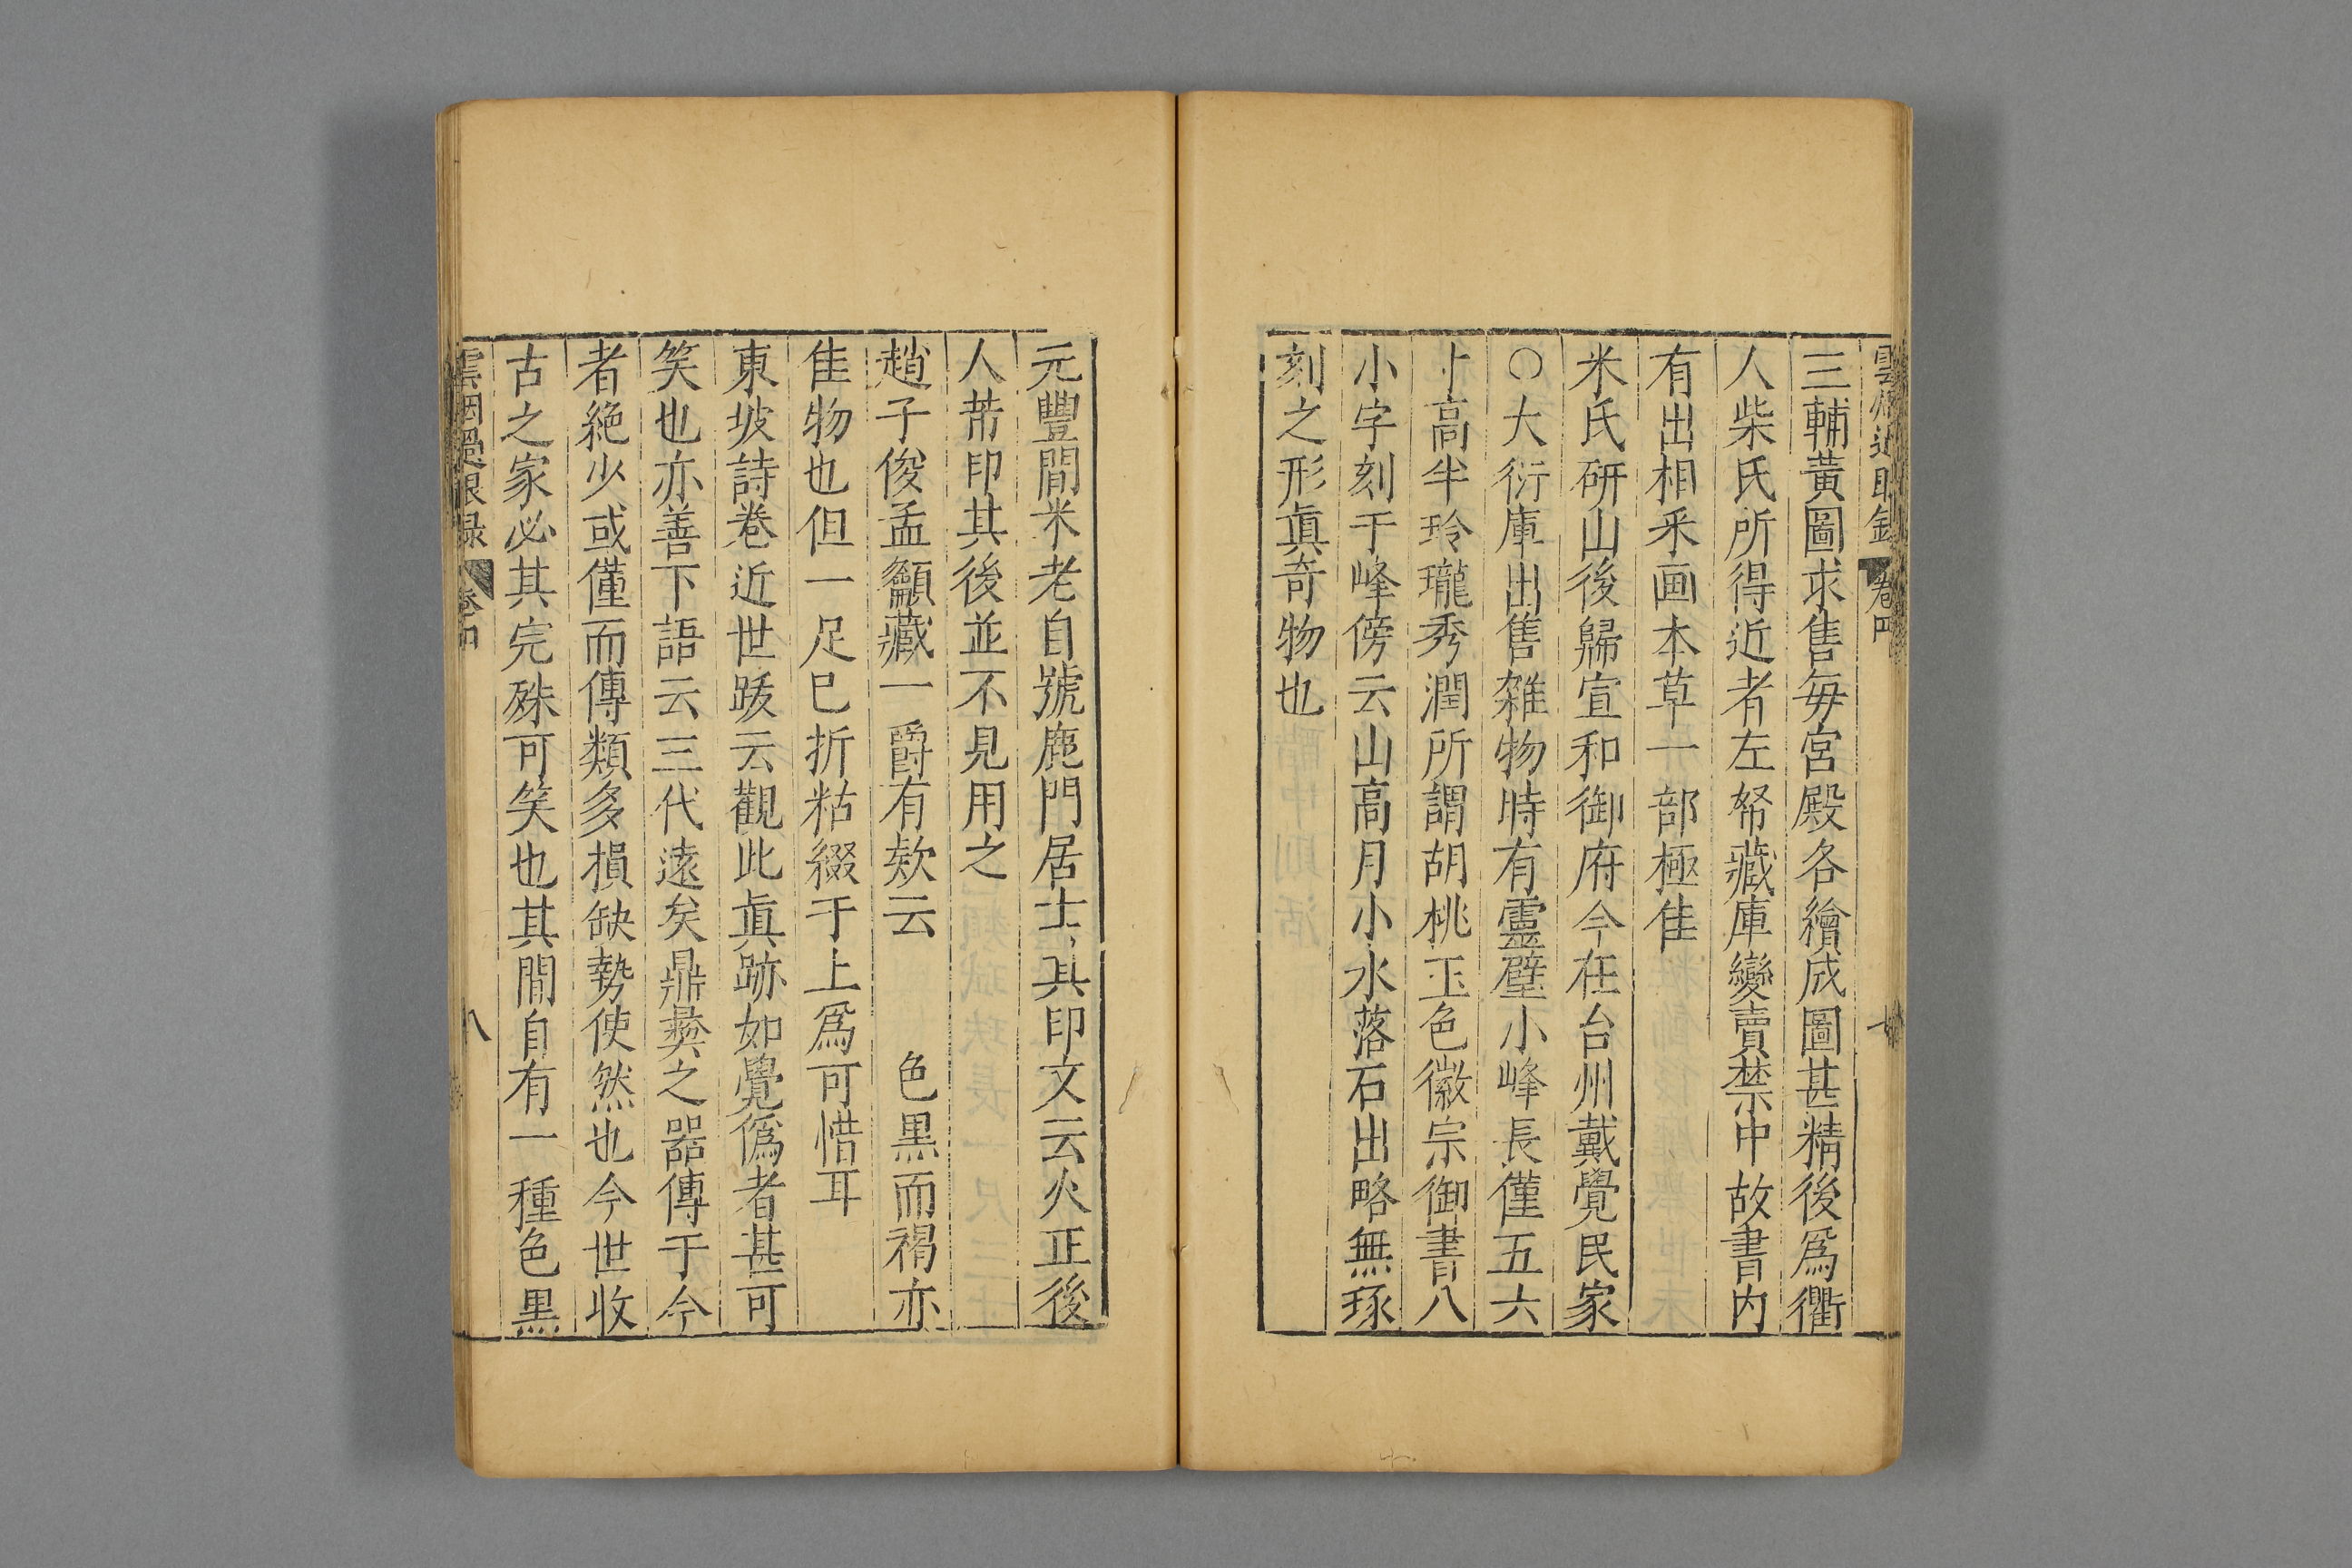 三輔黃圖求售毎宮殿各繪成圖甚精後爲衢
人柴氏所得近者左帑藏庫變賣禁中故書内
有出相釆画本草一部極隹
米氏研山後歸宣和御府今在台州戴覺民家
○大衍庫出售雜物時有靈壁小峰長僅五六
寸高半玲瓏秀潤所謂胡桃玉色徽宗御書八
小字刻于峰傍云山高月小水落石出略無琢
刻之形眞奇物也
元豐間米老自號鹿門居士其印文云火正後
人芾印其後並不見用之
趙子俊孟籲藏一爵有欵云 色黒而褐亦
隹物也但一足巳折粘綴于上爲可惜耳
東坡詩卷近世跋云觀此眞跡如覺僞者甚可
笑也亦善下語云三代遠矣鼎彜之器傳于今
者絶少或僅而傳類多損缺勢使然也今世收
古之家必其完殊可笑也其間自有一種色黒
雲烟過眼録 卷四 八